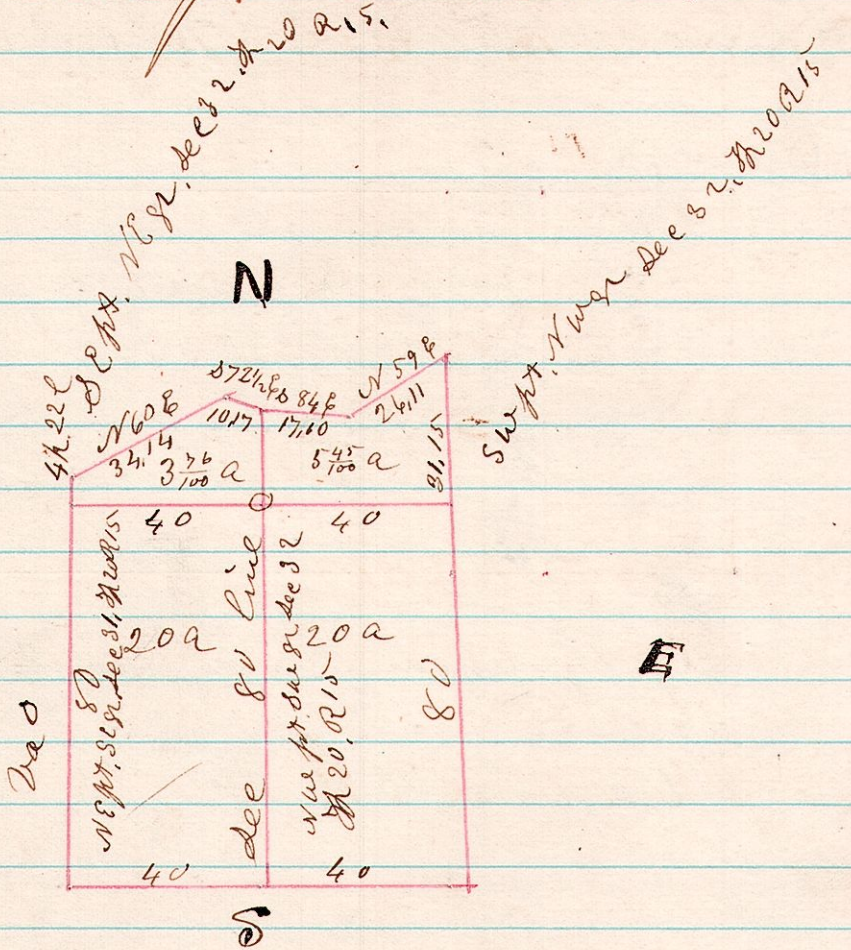 SE pt. NE qr. Sec 32. Tp 20 R. 15.
SW pt. NW qr Sec 32. Tp 20 R 15
N
4 p. 22 l
N 60 E
34,14
S 72 1/2 E
10,17
S 84 E
17,60
N 59 E
24,11
31,15
3 76/100 a
5 45/100 a
40
40
NE pt. SE qr. Sec 31. Tp 20 R 15
80
20 a
Sec 80 line
NW pt SW qr Sec 32
Tp 20, R 15
20 a
80
E
Va 0
40
40
S